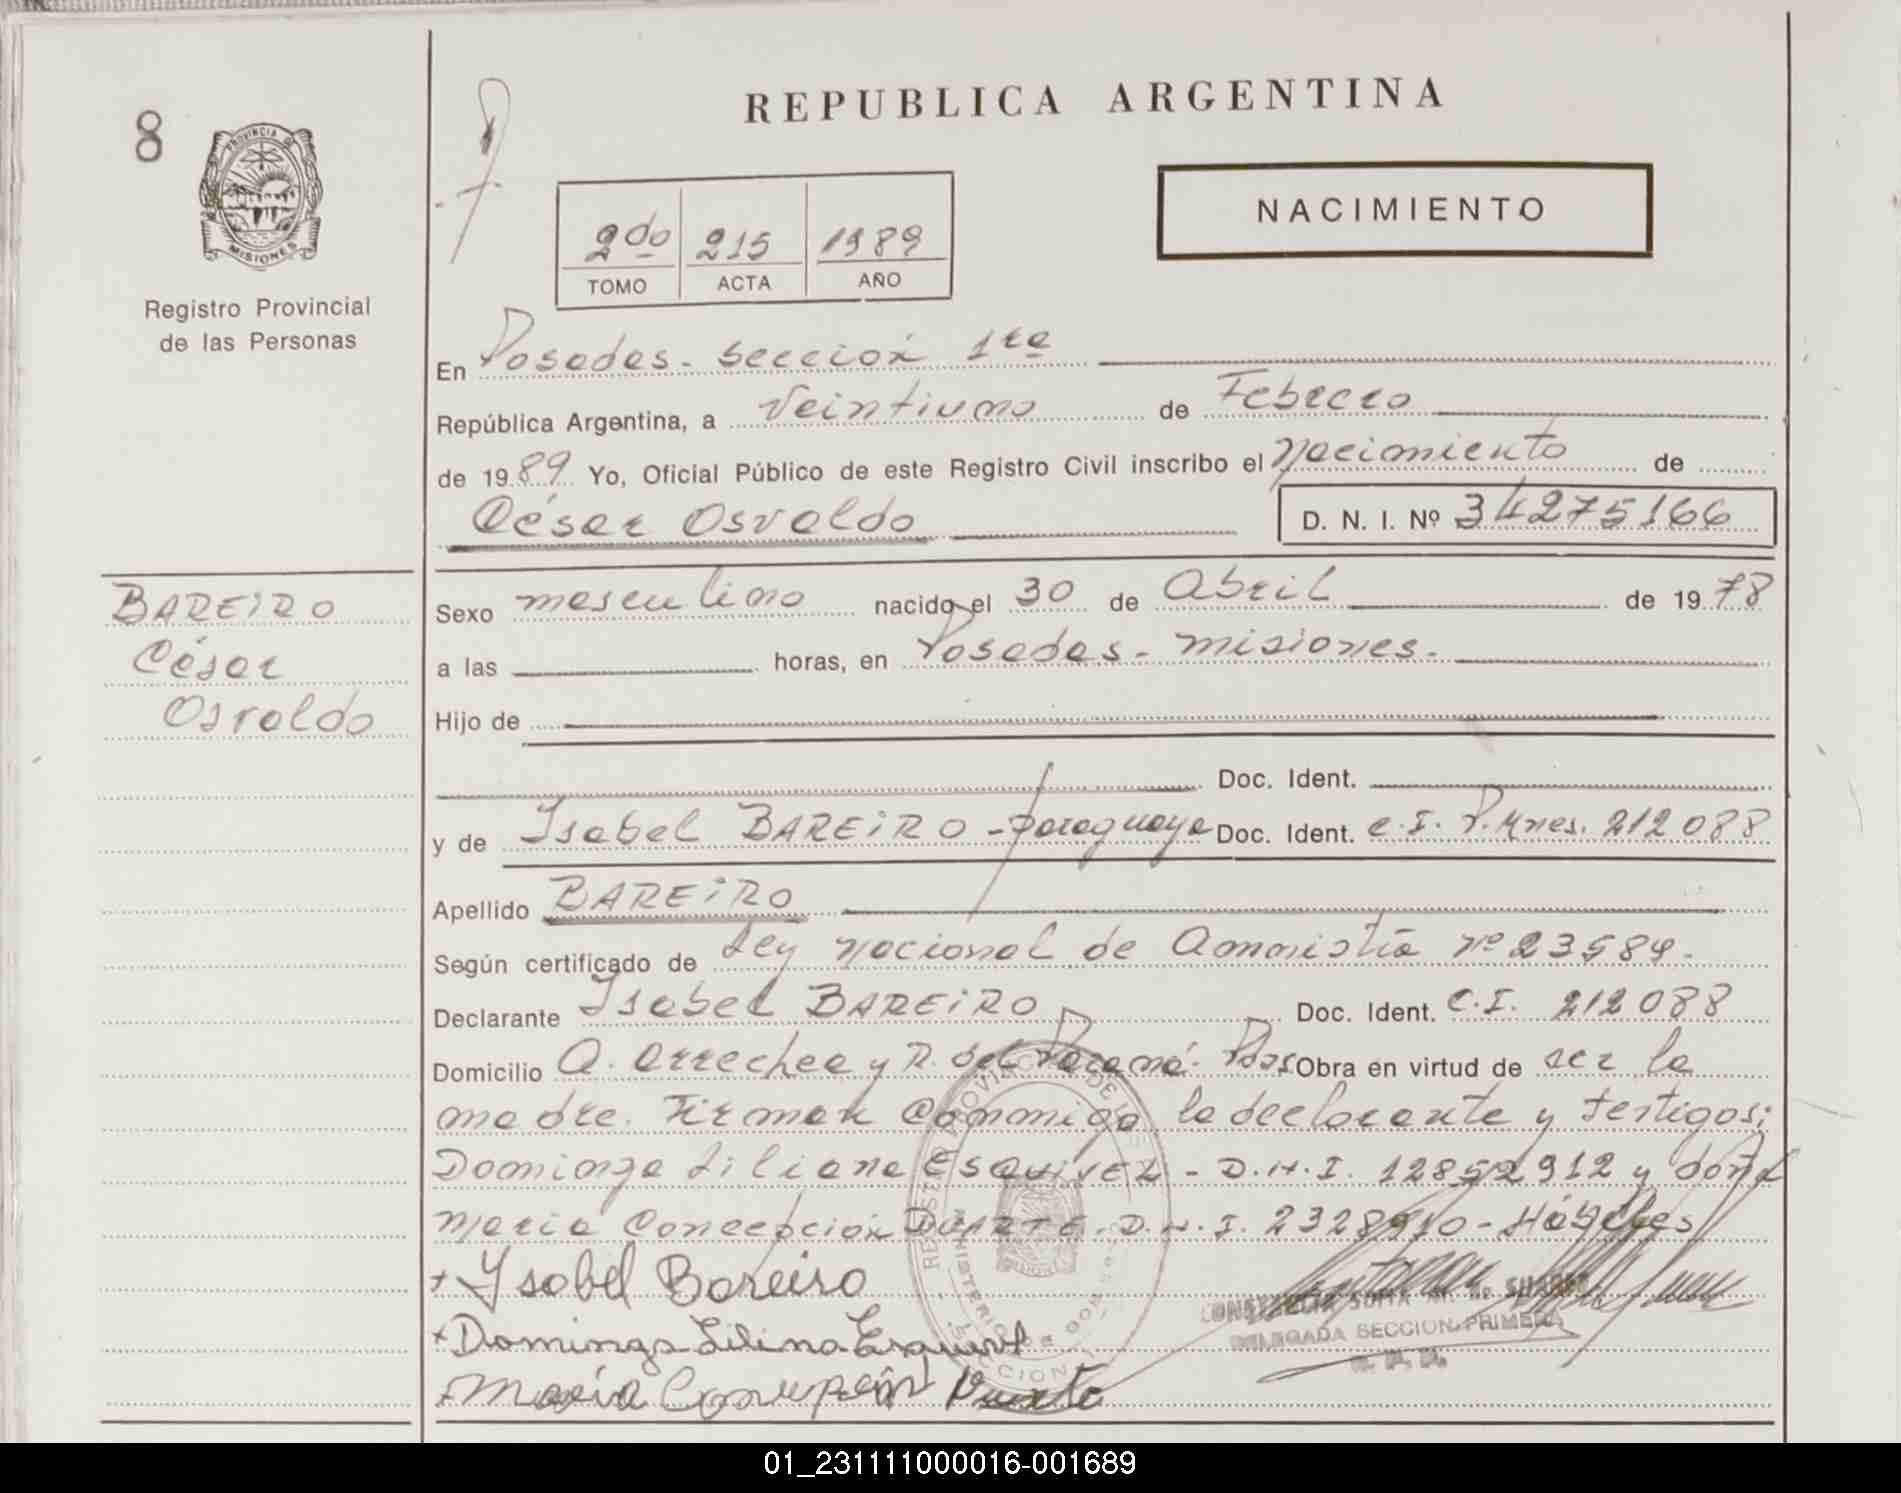 8
PROVINCIA DE
MISIONES
Registro Provincial
de las Personas
BAREIRO
César
Osvaldo
REPUBLICA ARGENTINA
NACIMIENTO
2do 215 1989
TOMO ACTA AÑO
En Posadas - Sección 1ra
República Argentina, a veintiuno de Febrero
de 1989 Yo, Oficial Público de este Registro Civil inscribo el Nacimiento de
César Osvaldo D. N. I. Nº 34275166
Sexo masculino nacido el 30 de Abril de 1978
a las horas, en Posadas - Misiones.
Hijo de
Doc. Ident.
y de Isabel BAREIRO - Paraguaya Doc. Ident. C.I. P. Mnes. 212088
Apellido BAREIRO
Según certificado de Ley Nacional de Amnistía Nº 23584.
Declarante Isabel BAREIRO Doc. Ident. C.I. 212088
Domicilio A. Arrechea y R. del Paraná - Pdas Obra en virtud de ser la
madre. Firman conmigo la declarante y testigos:
Dominga Liliana ESQUIVEL - D.N.I. 12852912 y doña
María Concepción DUARTE - D.N.I. 2328910 - Hábiles
+ Ysabel Bareiro
+ Dominga Lilina Esquivel
+ María Concepción Duarte
SUAREZ
DELEGADA SECCION PRIMERA
R. P. P.
01_231111000016-001689